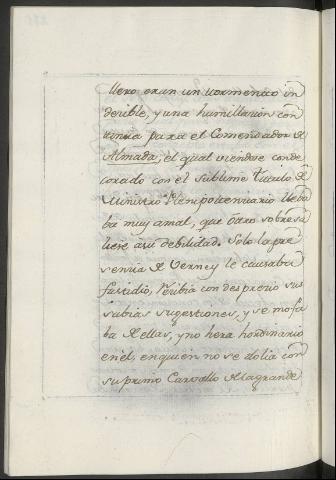 llero eran un tormento in
decible, y una humillacion con
tinua para el Comendador de
Almada, el qual viendose conde
corado con el sublime Titulo de
Ministro Plenipotenciario lleva
ba muy amal, que otro sobresa
liese a su debilidad. Solo la pre
sencia de Verney le causaba
fastidio, recibia con desprecio sus
sabias sugestiones, y se mofa
ba de ellas, y no hera hordinario
en el, en quien no se dolia con
su primo Carvallo de la grande